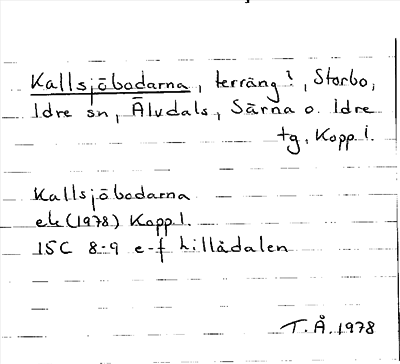 Kallsjöbodarna, terräng?, Storbo,
Idre sn, Älvdals, Särna o. Idre
tg, Kopp. l.
Kallsjöbodarna
ek (1978) Kopp. l.
15C 8-9 e-f Lillådalen
T. Å. 1978